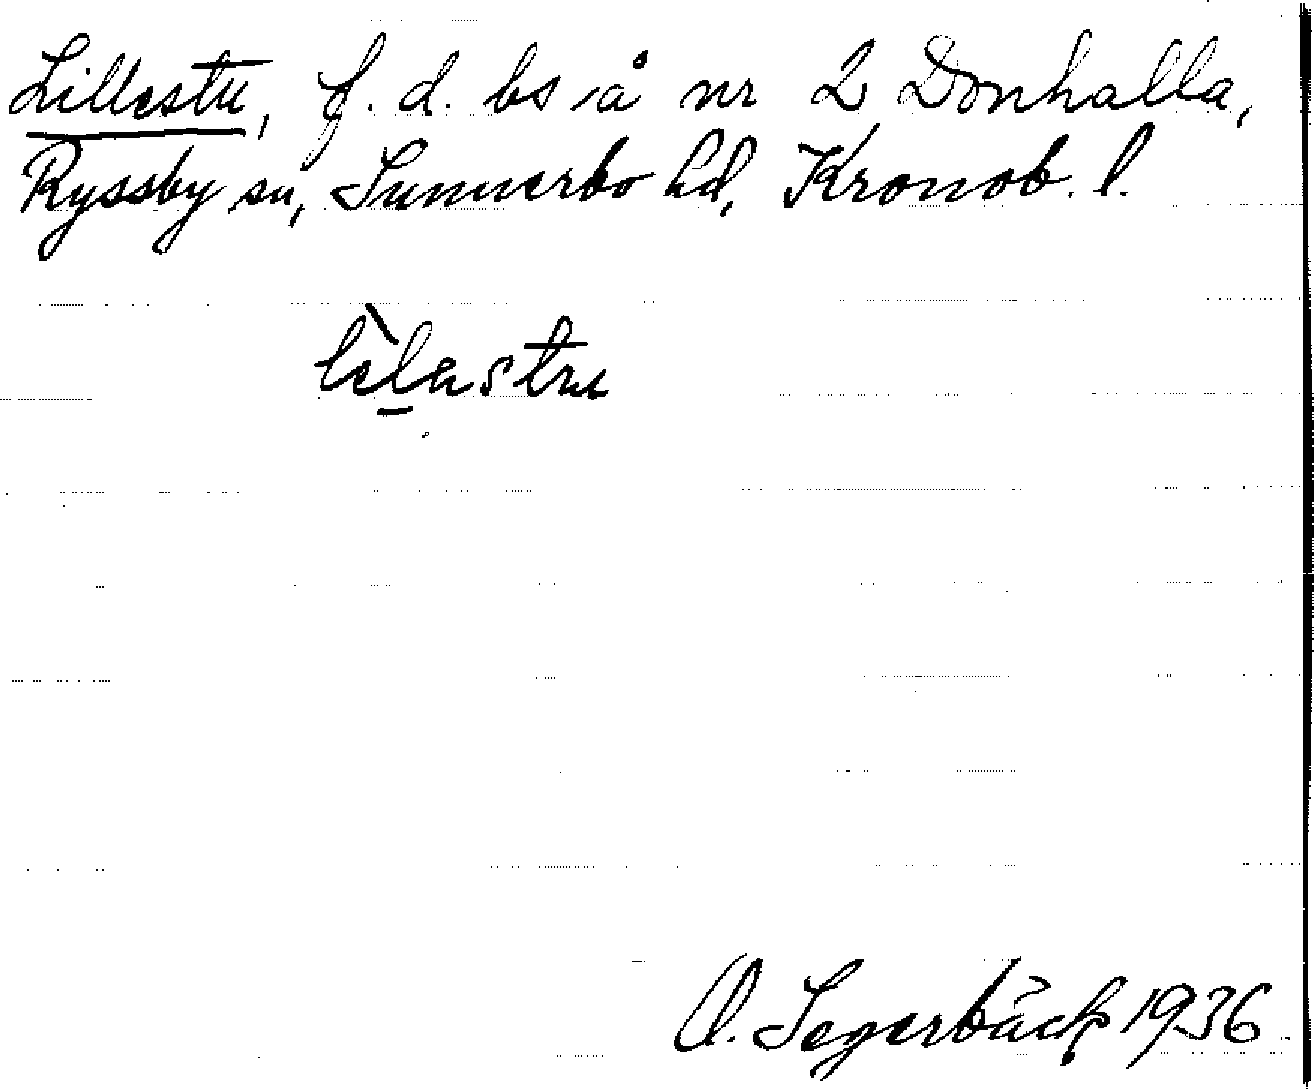 Lillestu, f. d. bs å nr 2 Donhalla,
Ryssby sn, Sunnerbo hd, Kronob. l.
O. Segerbäck 1936